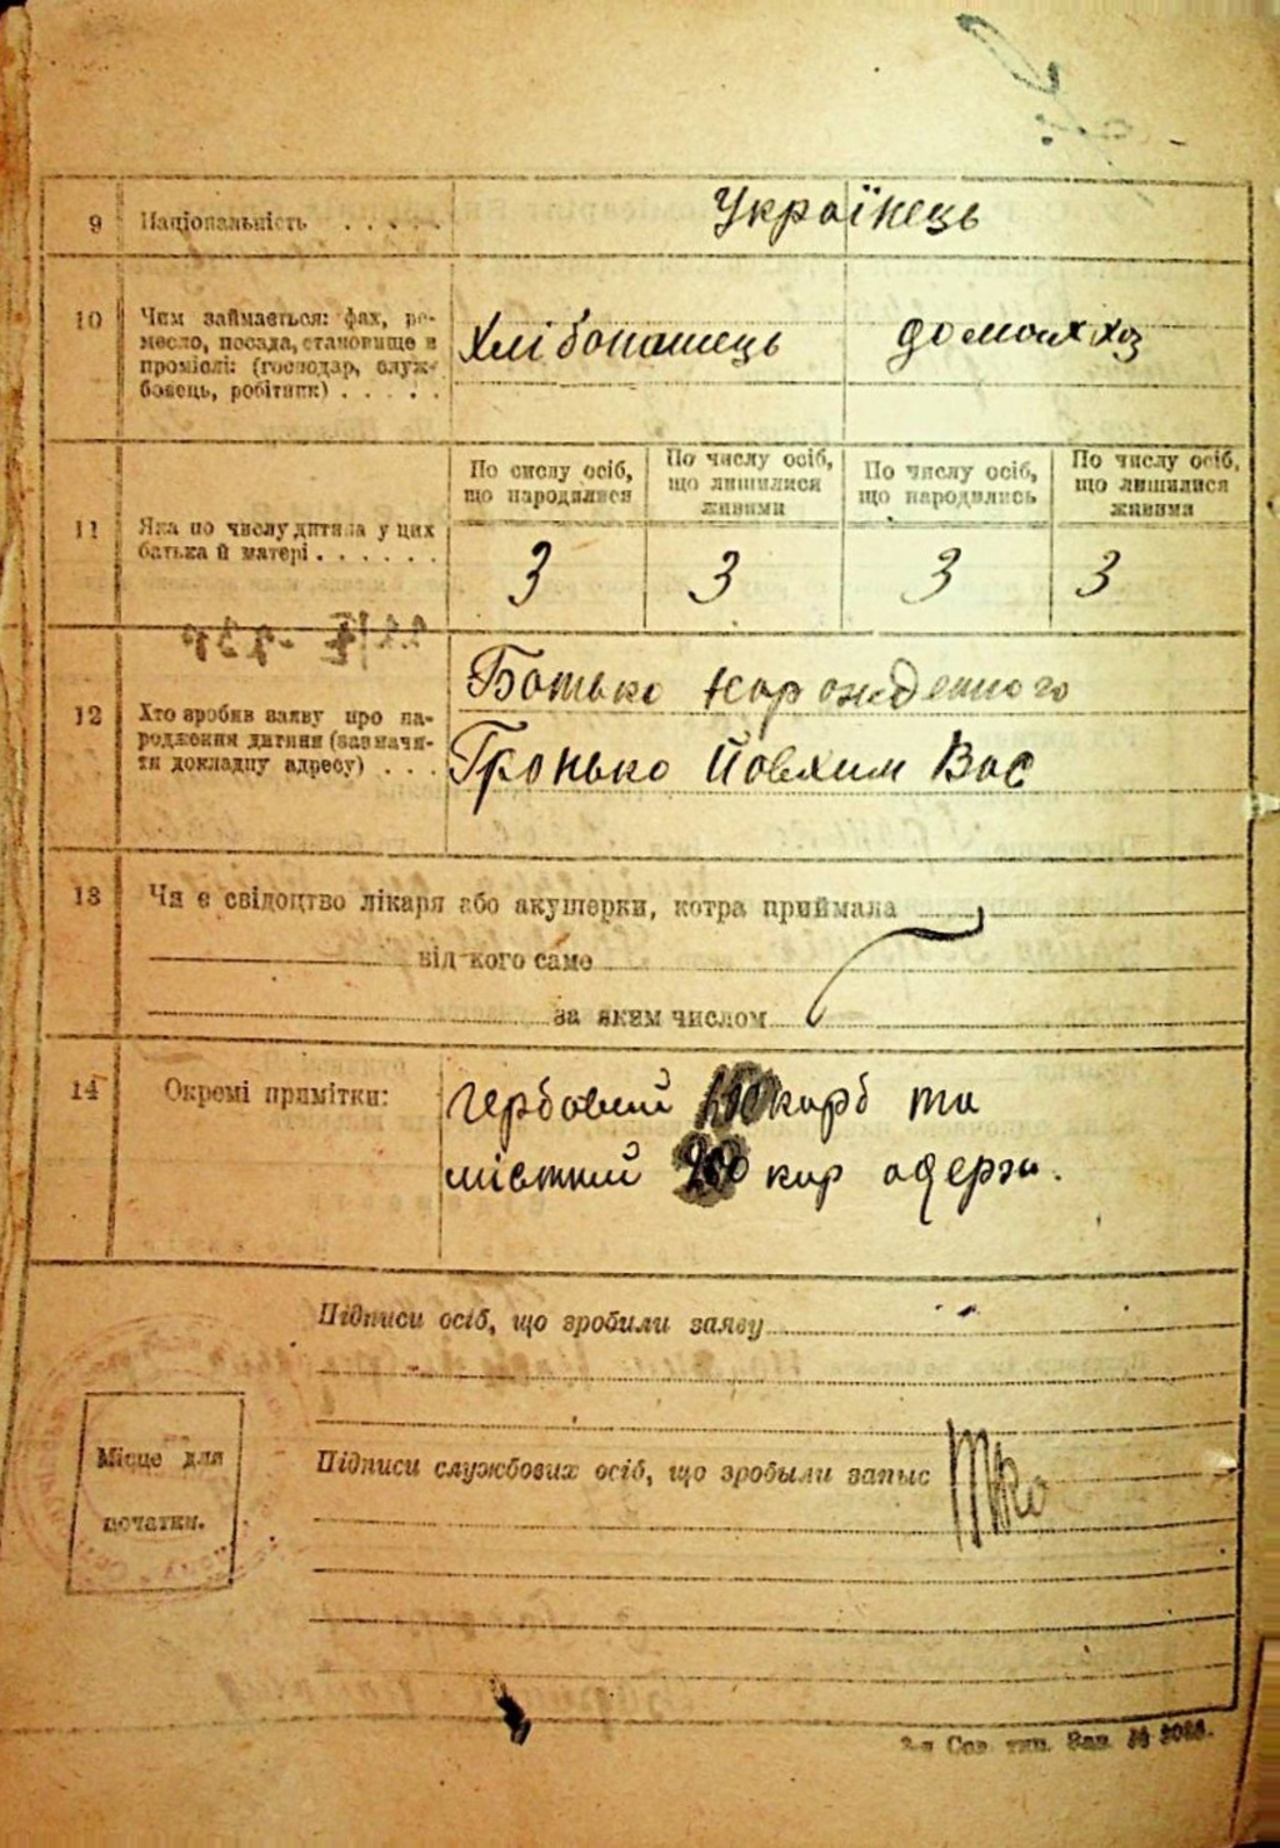 9 Національність . . . . . Українець
10 Чим займається: фах, ре-
месло, посада, становище в
промислі: (господар, служ-
бовець, робітник) . . . . .
Хлібопашець домашх хоз
11 Яка по числу дитина у цих
батька й матері . . . . . .
По числу осіб,
що народилися
По числу осіб,
що лишилися
живими
По числу осіб,
що народились
По числу осіб,
що лишилися
живими
3 3 3 3
12 Хто зробив заяву про на-
родження дитини (зазначи-
ти докладну адресу) . . .
Батько нарожденного
Гронько Йовхим Вас
13 Чи є свідоцтво лікаря або акушерки, котра приймала
від кого саме
за яким числом
14 Окремі примітки:
гербовий карб та
містний 200 кар одерж.
Підписи осіб, що зробили заяву
Підписи службових осіб, що зробыли запыс
Місце для
початки.
2-я Сов. тип. Зак. №